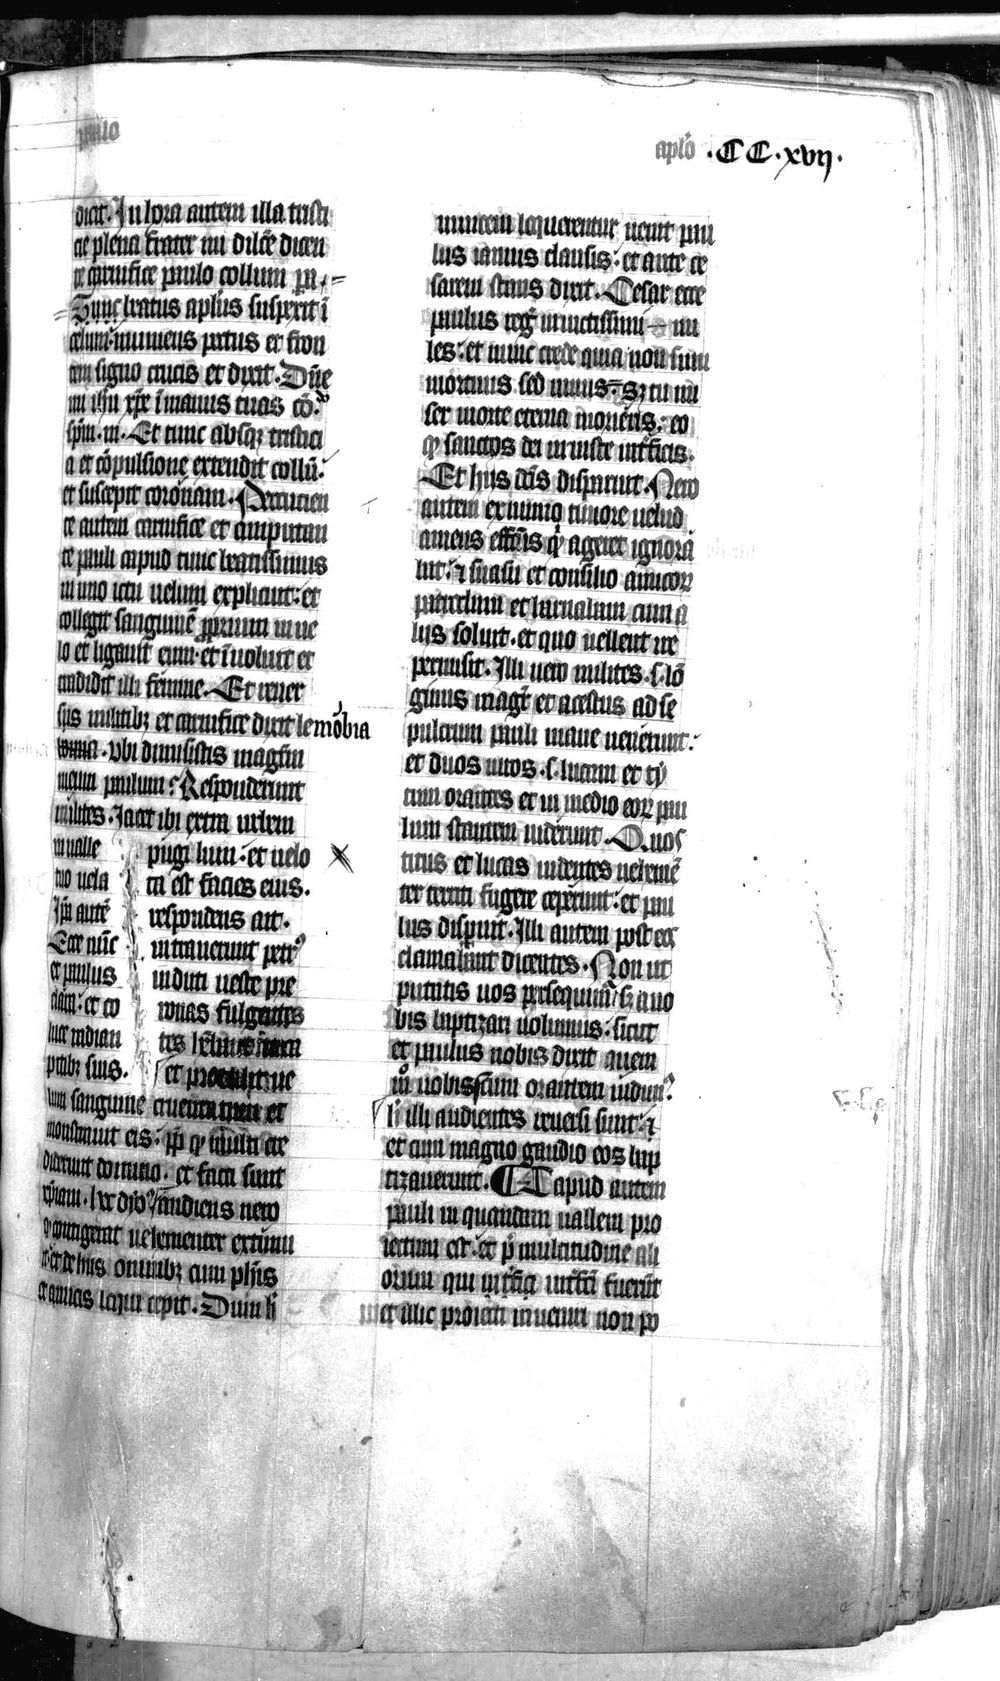 paulo
aplō .CC.xvij.
dicit. In hora autem illa tristi
cie plena frater mi dilc̄e dicen
te carnifice paulo collum
Tunc beatus apl̄us suspexit ī
celum
tem signo crucis et dixit. Dn̄e
mi ih̄u xp̄e ī manus tuas cō
sp̄m. m. Et tunc absqꝫ tristici
a et cōpulsione extendit collū:
et suscepit coronam. Percucien
te autem carnifice et amputan
te pauli caput tunc beatissimus
in uno ictu uelum explicauit: et
collegit sanguinē proprium in ue
lo et ligauit eum et īuoluit et
tradidit illi femine. Et reuer
sus militibꝫ et carnifice dixit lemōbia
Vbi dimisistis magr̄m
meum paulum: Responderunt
milites. Iacet ibi extra urbem
in ualle
pugilum: et uelo
tuo uela
ta est facies eius.
Ip̄a autē
respondens ait.
Ecce nūc
intrauerunt petr
et paulus
induti ueste pre
clara: et co
ronas fulgentes
luce radian
tes
ptibꝫ suis.
et
sanguine cruentatum et
monstrauit eis: qꝫ multi cre
diderunt domino: et facti sunt
xp̄iani. audiens nero
contigerat uehementer extimu
it: et de hiis omnibꝫ cum ph̄is
et amicis loqui cepit. Dum h̄
inuicem loquerentur uenit pau
lus ianuis clausis: et ante ce
sarem stans dixit. Cesar ecce
paulus reḡ inuictissimi mi
les: et nunc crede quia non sum
mortuus sed uiuus. Sꝫ tu mi
ser morte eterna morieris: eo
qꝫ sanctos dei iniuste int̄ficis.
Et hiis dc̄is disparuit. Nero
autem ex nimio timore uelud
amens effc̄us qd ageret ignora
uit: ⁊ suasu et consilio amicoꝝ
patrclum et barnaban cum a
liis soluit. et quo uellent ire
permisit. Illi uero milites .s. lō
ginus magr̄ et acestus ad se
pulcrum pauli mane uenerunt:
et duos uiros .s. lucam et ty
tum orantes et in medio eoꝝ pau
lum stantem uiderunt. Quos
titus et lucas uidentes uehemē
ter territi fugere ceperunt: et pau
lus disparuit. Illi autem post eos
clamabant dicentes. Non ut
putatis uos persequimur sꝫ a uo
bis baptizari uolumus: sicut
et paulus nobis dixit quem
mō uobiscum orantem uidim
h̄ illi audientes reuersi sunt: ⁊
et cum magno gaudio eos bap
tizauerunt. Caput autem
pauli in quandam uallem pro
iectum est: et p̄ multitudine ali
orum qui int̄fc̄i fuerūt
et illuc proiecti inueniri non po